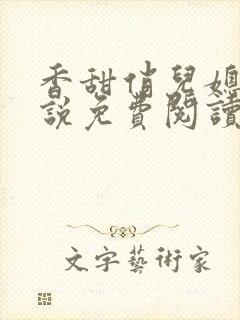 香甜俏兒媳
說免費閱讀
文字藝術家